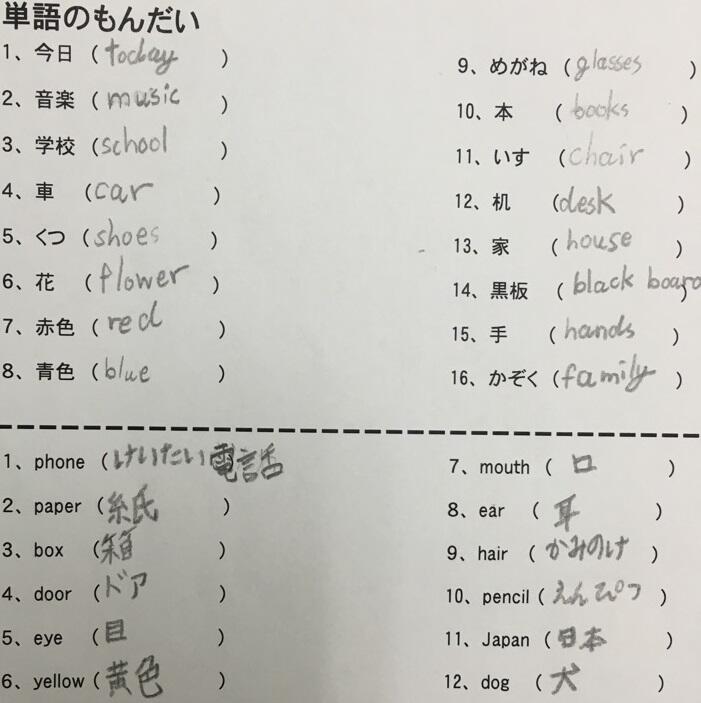 単語のもんだい
1、今日 (today)
2、音楽 (music)
3、学校 (school)
4、車 (car)
5、くつ (shoes)
6、花 (flower)
7、赤色 (red)
8、青色 (blue)
9、めがね (glasses)
10、本 (books)
11、いす (chair)
12、机 (desk)
13、家 (house)
14、黒板 (black board)
15、手 (hands)
16、かぞく (family)
1、phone (けいたい電話)
2、paper (紙)
3、box (箱)
4、door (ドア)
5、eye (目)
6、yellow (黄色)
7、mouth (口)
8、ear (耳)
9、hair (かみのけ)
10、pencil (えんぴつ)
11、Japan (日本)
12、dog (犬)